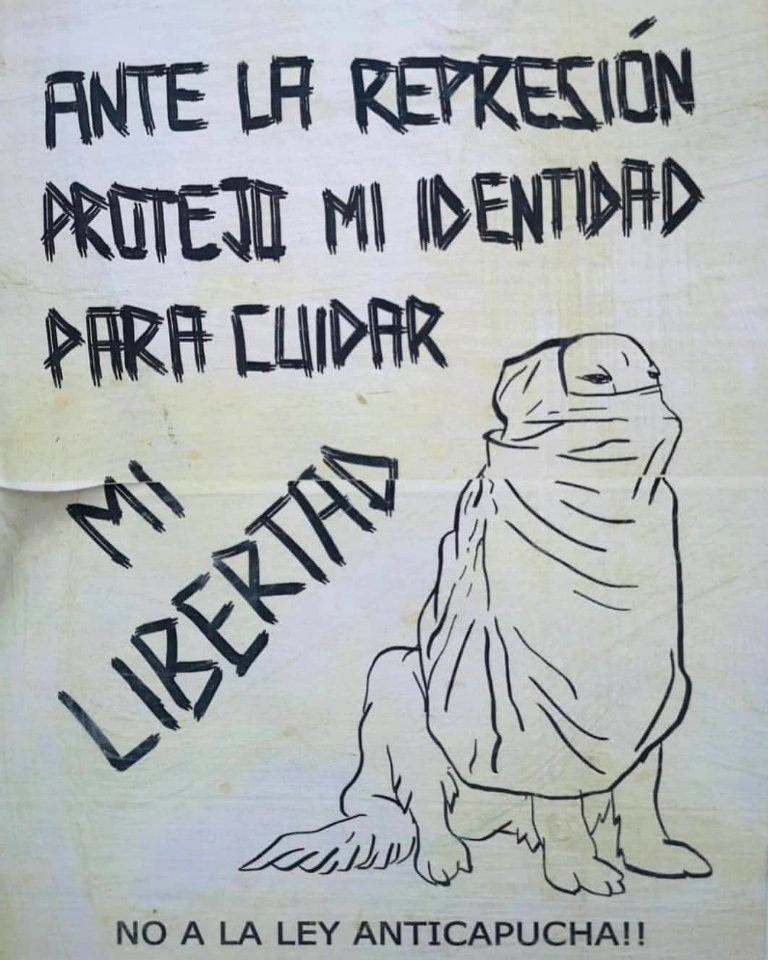 ANTE LA REPRESIÓN
PROTEJO MI IDENTIDAD
PARA CUIDAR
MI
LIBERTAD
NO A LA LEY ANTICAPUCHA!!